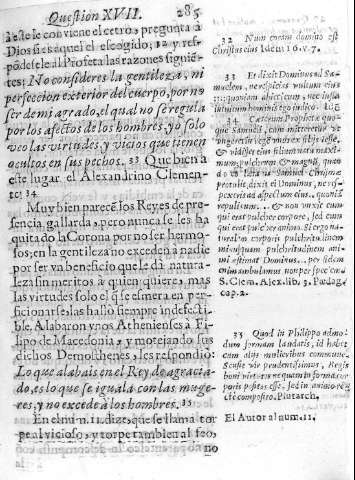 Question XVII. 285
à este le conviene el cetro, pregunta à
Dios si es aquel el escogido; 32 y res-
pondesele al Profeta las razones siguiẽ-
tes: No consideres la gentileza, ni
perfeccion exterior del cuerpo, por no
ser de mi agrado, el qual no se regula
por los afectos de los hombres, yo solo
veo las virtudes, y vicios que tienen
ocultos en sus pechos. 33 Que bien à
este lugar el Alexandrino Clemen-
te: 34
Muy bien parecẽ los Reyes de pre-
sencia gallarda, pero nunca se les ha
quitado la Corona por no ser hermo-
sos; en la gentileza no exceden à nadie
por ser va beneficio que le dà natura-
leza sin meritos à quien quiere; mas
las virtudes solo el q̃ se esmera en per-
ficionarse, las hallò siempre indefecti-
ble. Alabaron vnos Athenienses à Fi-
lipo de Macedonia, y motejando sus
dichos Demosthenes, les respondiò:
Lo que alabais en el Rey de agracia-
do, es lo que se iguala con las muge-
res, y no excede à los hombres. 35
En el nu. 11. dize, que se llama tor-
pe al vicioso, y torpe tambien al feo,
no
32 Num coram domino est
Christus eius Idem 16. v. 7.
33 Et dixit Dominus ad Sa-
muelem, ne respicias vultum eius
quoniam abieci eum, nec iuxta
intuitum hominis ego iudico. Ibi
34 Cæterum Prophetæ quo-
que Samueli, cum mitteretur vt
vngeret in
& vidisset eius filium natu maxi-
mum pulchrum & magnũ, quan-
do
protulit, dixit ei Dominus, ne res-
picias ad aspectum eius,
repulit eum.. & non vnxit eum
qui erat pulcher corpore, sed eum
qui erat pulcher animo. Si ergo na-
turalem corporis pulchritudinem
minorem pulchritudinem ani-
mi æstimat Dominus..
S. Clem. Alex. lib. 3. Pædag.
cap. 2.
35 Quod in Philippo admo-
dum formam laudatis, id habet
cum mulieribus commune.
Sense vir prudentissimus, Regis
boni virtutes nequam in forma cor-
poris positas esse, sed in animo rec-
tè composito. Plutarch.
El Autor al num. 11.